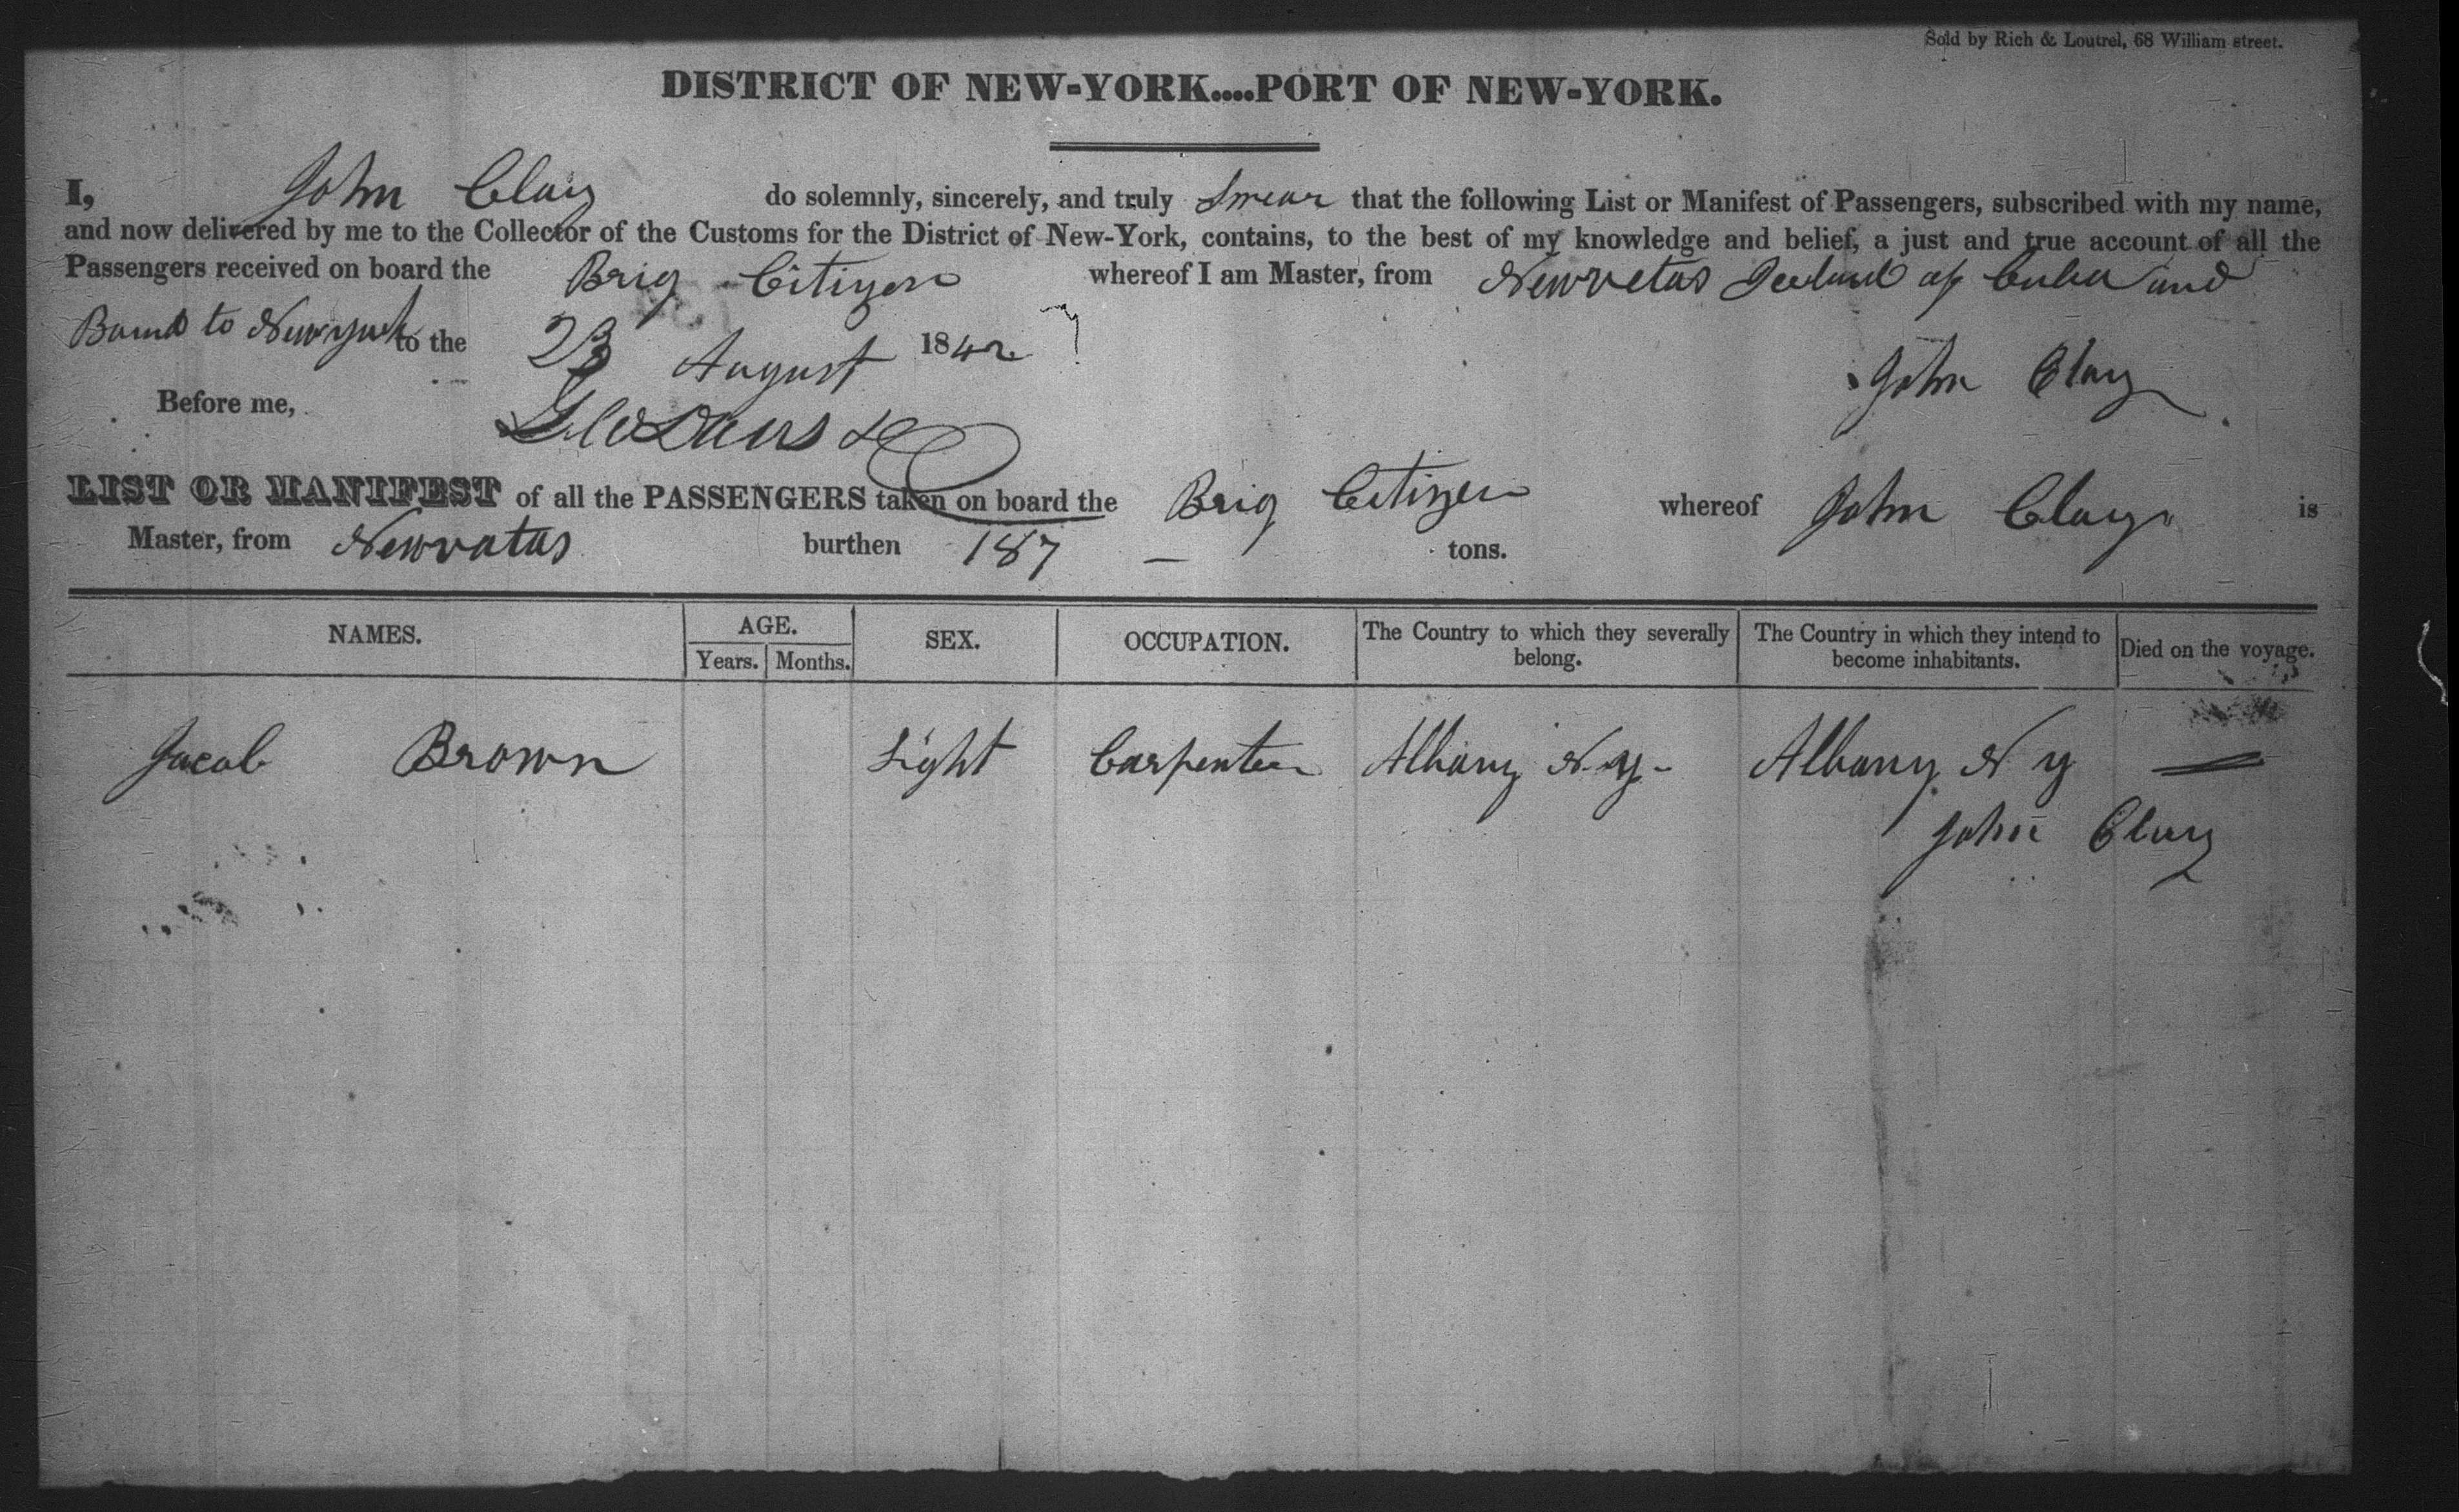 Sold by Rich & Loutrel, 68 William street.
DISTRICT OF NEW-YORK....PORT OF NEW-YORK.
I, John Clay do solemnly, sincerely, and truly Swear that the following List or Manifest of Passengers, subscribed with my name,
and now delivered by me to the Collector of the Customs for the District of New-York, contains, to the best of my knowledge and belief, a just and true account of all the
Passengers received on board the Brig Citizen whereof I am Master, from Newvetas Iseland of Cuba and
Bound to Newyork to the 23 August 1842
John Clay
Before me,
LIST OR MANIFEST of all the PASSENGERS taken on board the Brig Citizen whereof John Clay is
Master, from Newvatas burthen 187 tons.
NAMES. AGE. Years. Months. SEX. OCCUPATION. The Country to which they severally belong. The Country in which they intend to become inhabitants. Died on the voyage.
Jacob Brown Light Carpenter Albany N.y- Albany N y
John Clay